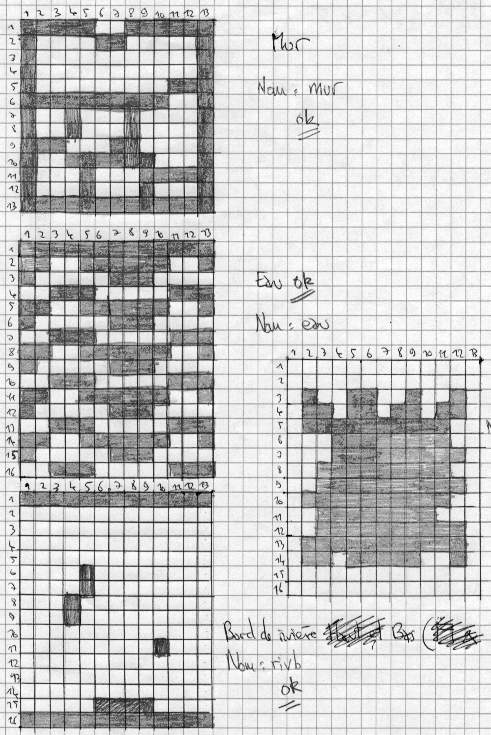 1 2 3 4 5 6 7 8 9 10 11 12 13
1
2
3
4
5
6
7
8
9
10
11
12
13
Mur
Nom = mur
ok
1 2 3 4 5 6 7 8 9 10 11 12 13
1
2
3
4
5
6
7
8
9
10
11
12
13
14
15
16
Eau ok
Nom = eau
1 2 3 4 5 6 7 8 9 10 11 12 13
1
2
3
4
5
6
7
8
9
10
11
12
13
14
15
16
1 2 3 4 5 6 7 8 9 10 11 12 13
1
2
3
4
5
6
7
8
9
10
11
12
13
14
15
16
Bord de rivière Bas (
Nom = rivb
ok